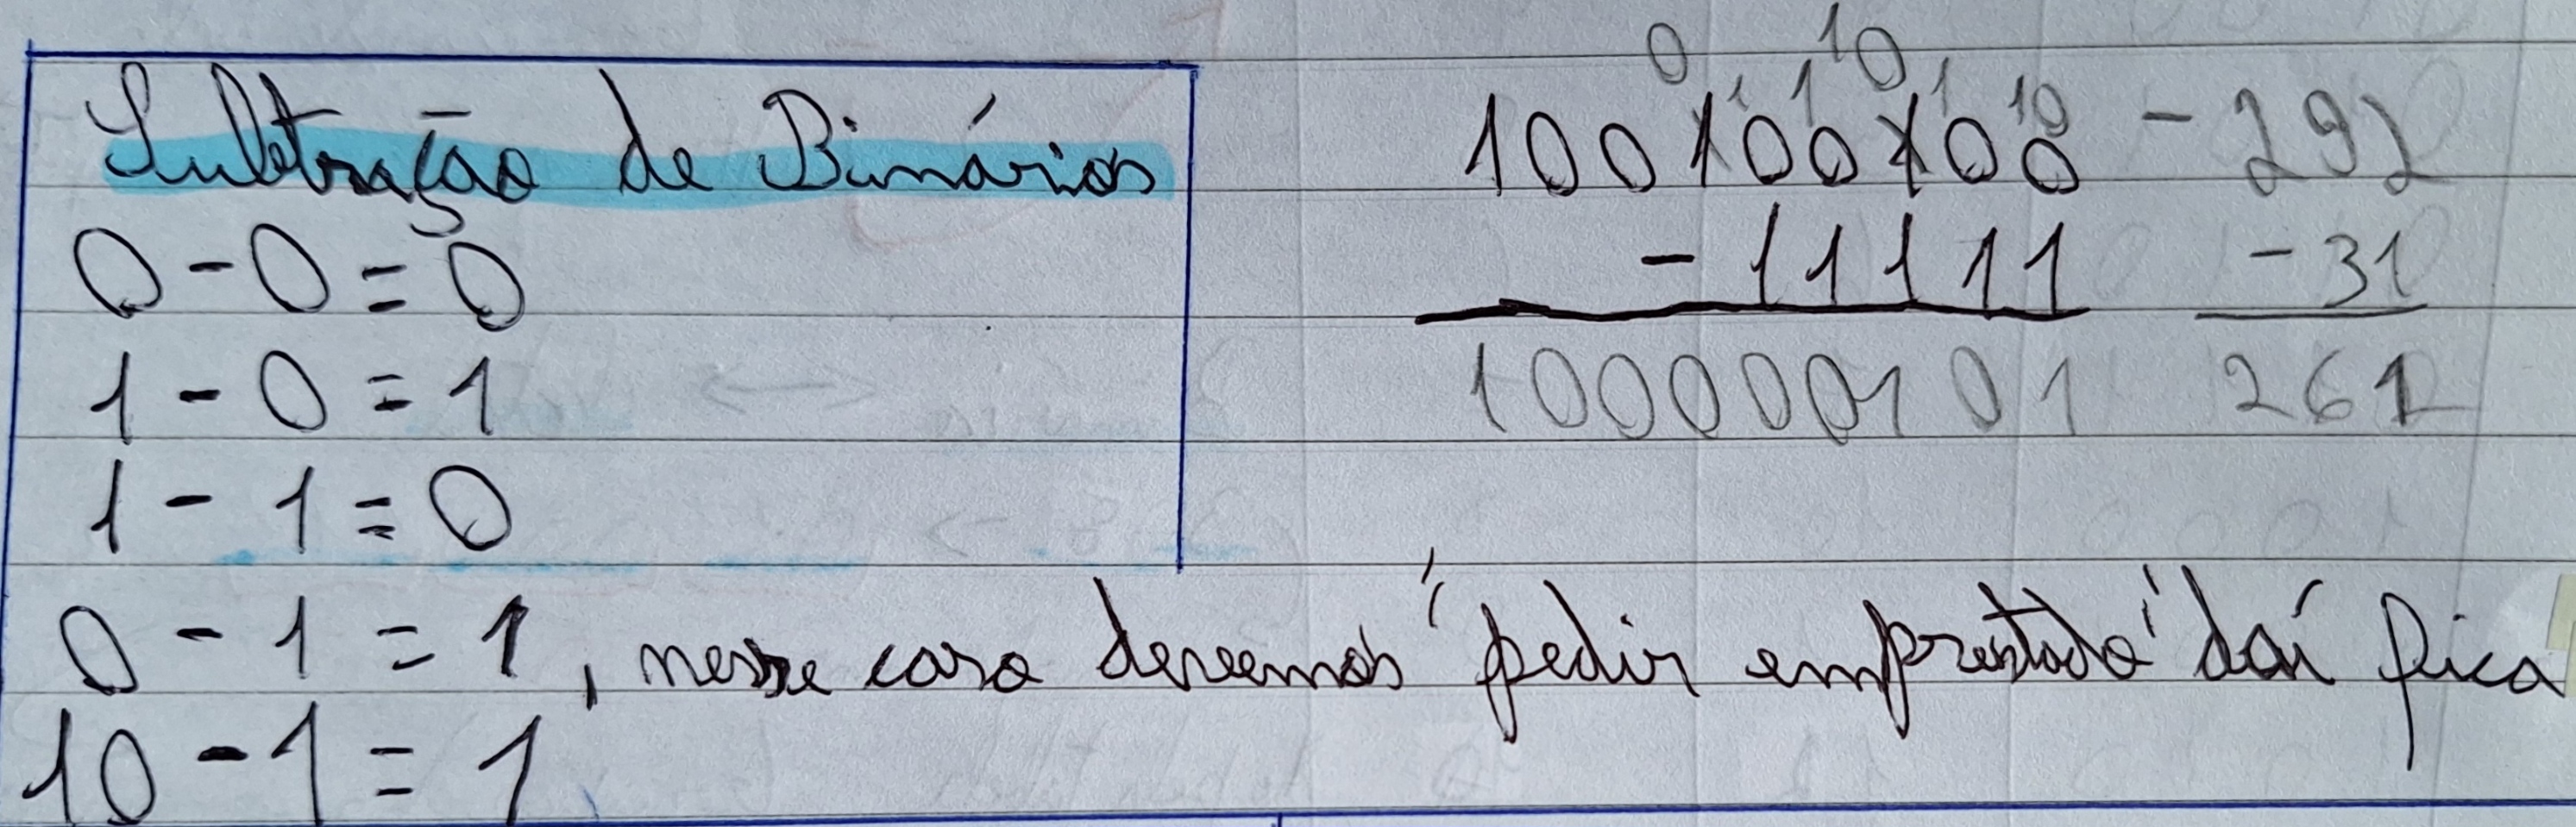 Subtração de Binários
0 - 0 = 0
1 - 0 = 1
1 - 1 = 0
0 - 1 = 1, nesse caso devemos "pedir emprestado" daí fica
10 - 1 = 1
0 10
1 1 1 10
100100100 - 292
- 11111 - 31
100000101 261